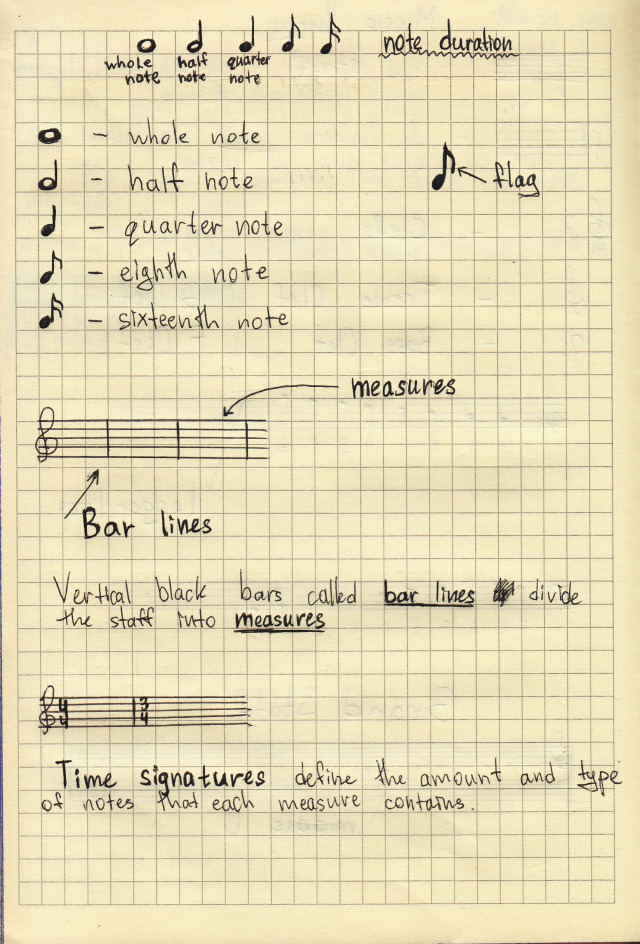 note duration
whole half quarter
note note note
- whole note
- half note
flag
- quarter note
- eighth note
- sixteenth note
measures
Bar lines
Vertical black bars called bar lines divide
the staff into measures
4 3
4 4
Time signatures define the amount and type
of notes that each measure contains.